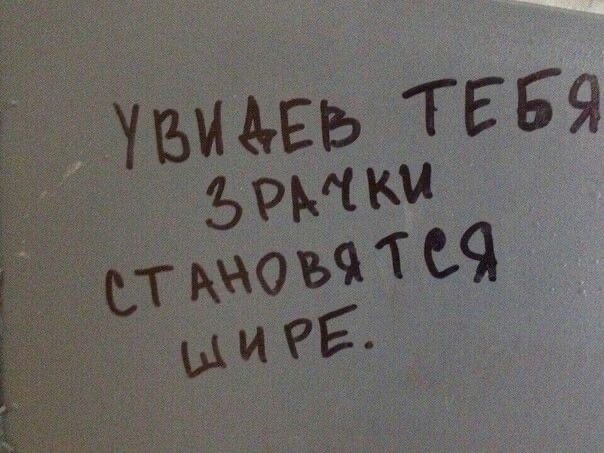 УВИДЕВ ТЕБЯ
ЗРАЧКИ
СТАНОВЯТСЯ
ШИРЕ.